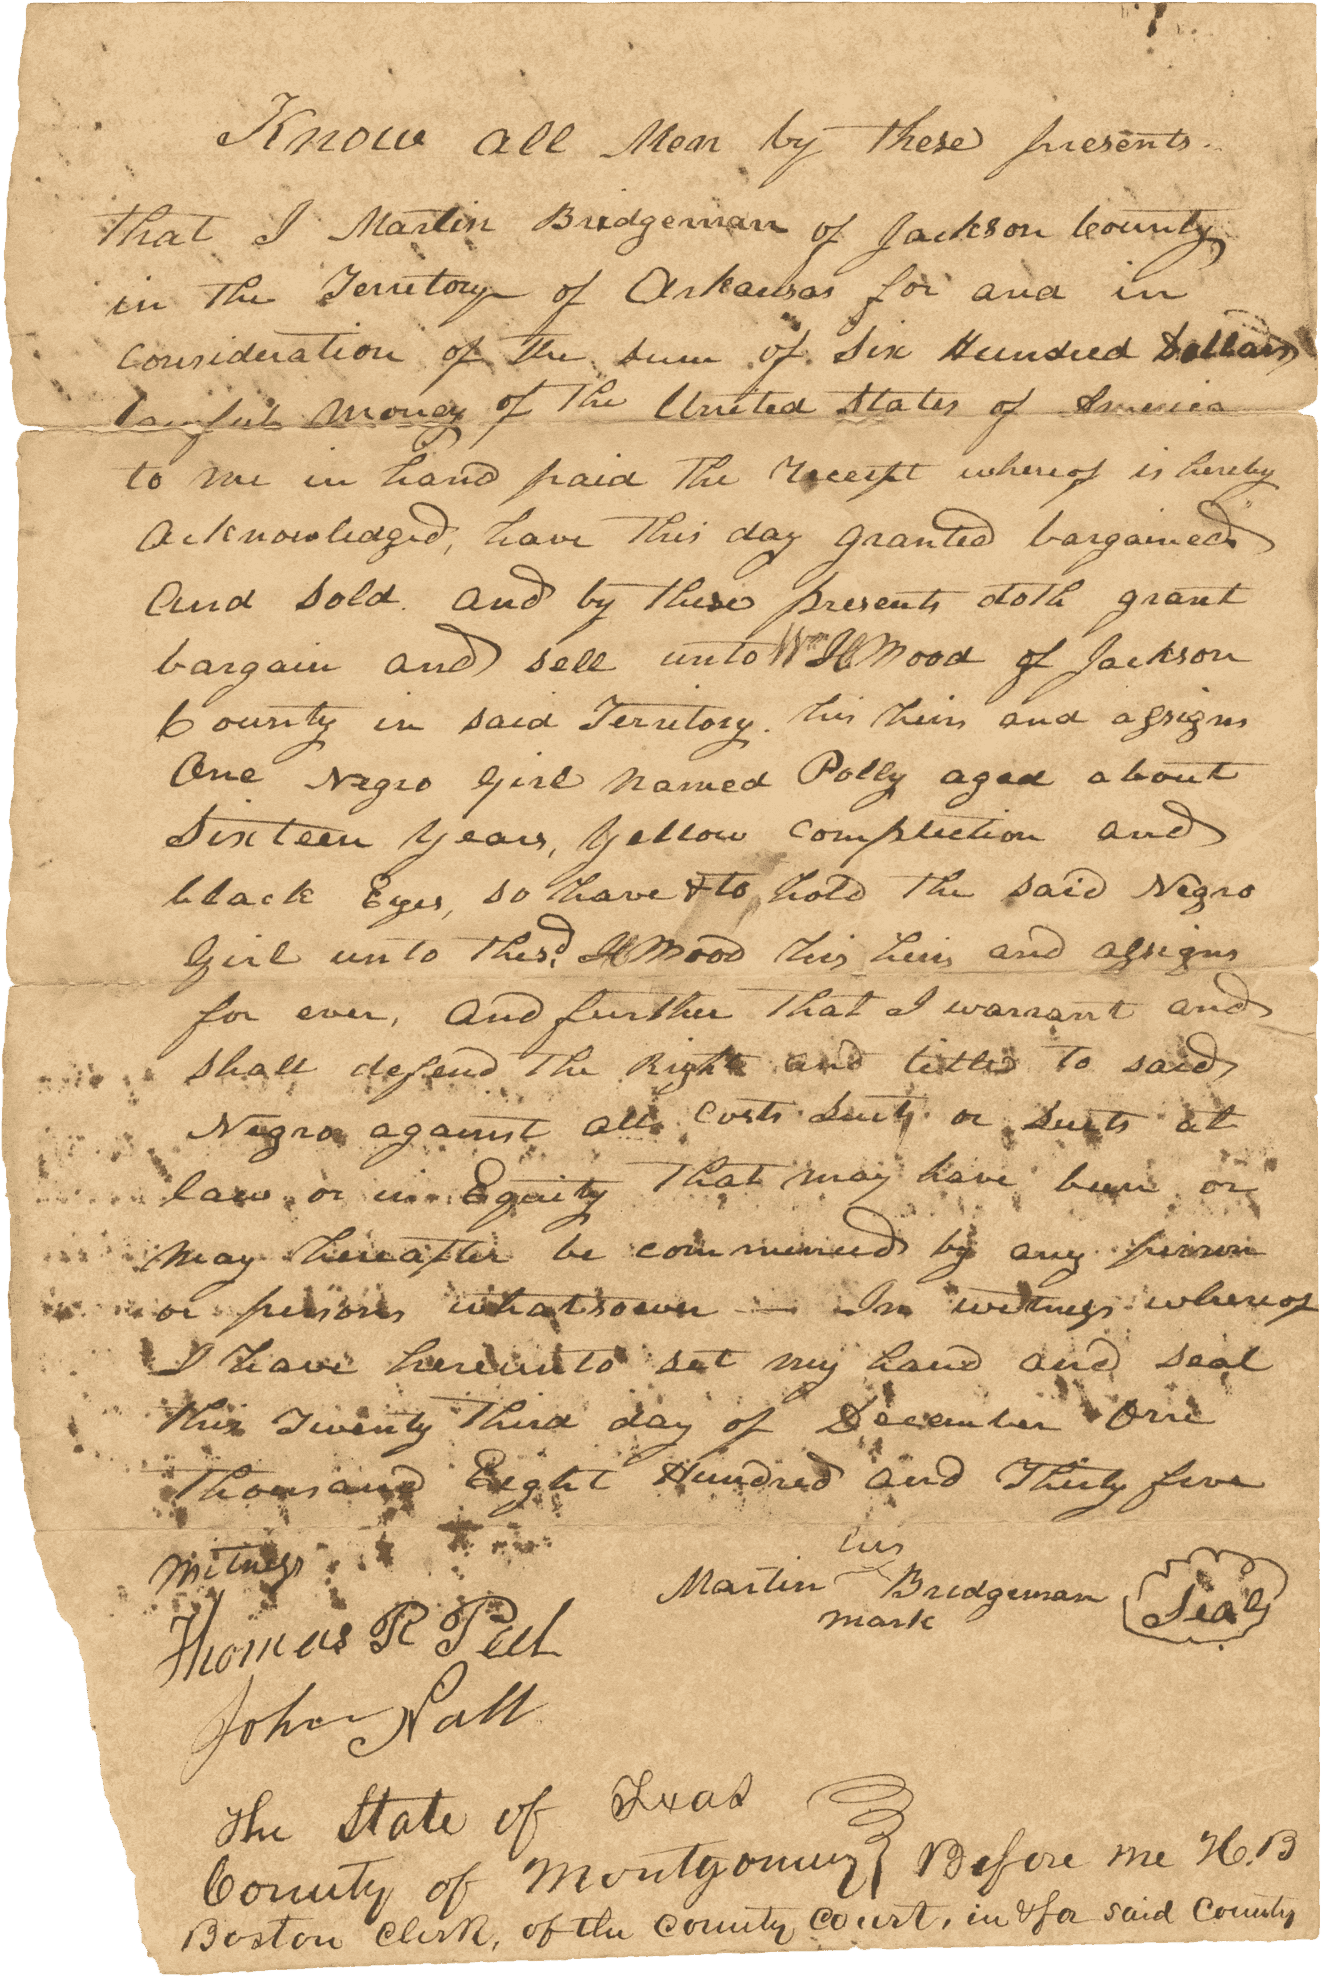 Know all Men by these presents.
that I Martin Bridgeman of Jackson County
in the Territory of Arkansas for and in
Consideration of the sum of Six Hundred Dollars
lawful Money of the United States of America
to me in hand paid the receipt whereof is hereby
acknowledged, have this day granted bargained
and sold. and by these presents doth grant
bargain and sell unto Wm H Wood of Jackson
County in said Territory. his heirs and assigns
One Negro Girl named Polly aged about
Sixteen years, yellow complection and
black Eyes, so have & to hold the said Negro
Girl unto the sd. H Wood his heirs and assigns
for ever, and further that I warrant and
shall defend the Right and title to said
Negro against all costs suits or suits at
law or in Equity that may have been or
may hereafter be commenced by any person
or persons whatsoever — In witness whereof
I have hereunto set my hand and seal
this Twenty third day of December One
thousand Eight Hundred and Thirty five
Witness
his
Martin Bridgeman Seal
mark
Thomas R Pell
John
The State of Texas
County of Montgomery } Before me H. B
Boston Clerk, of the County Court, in & for said County